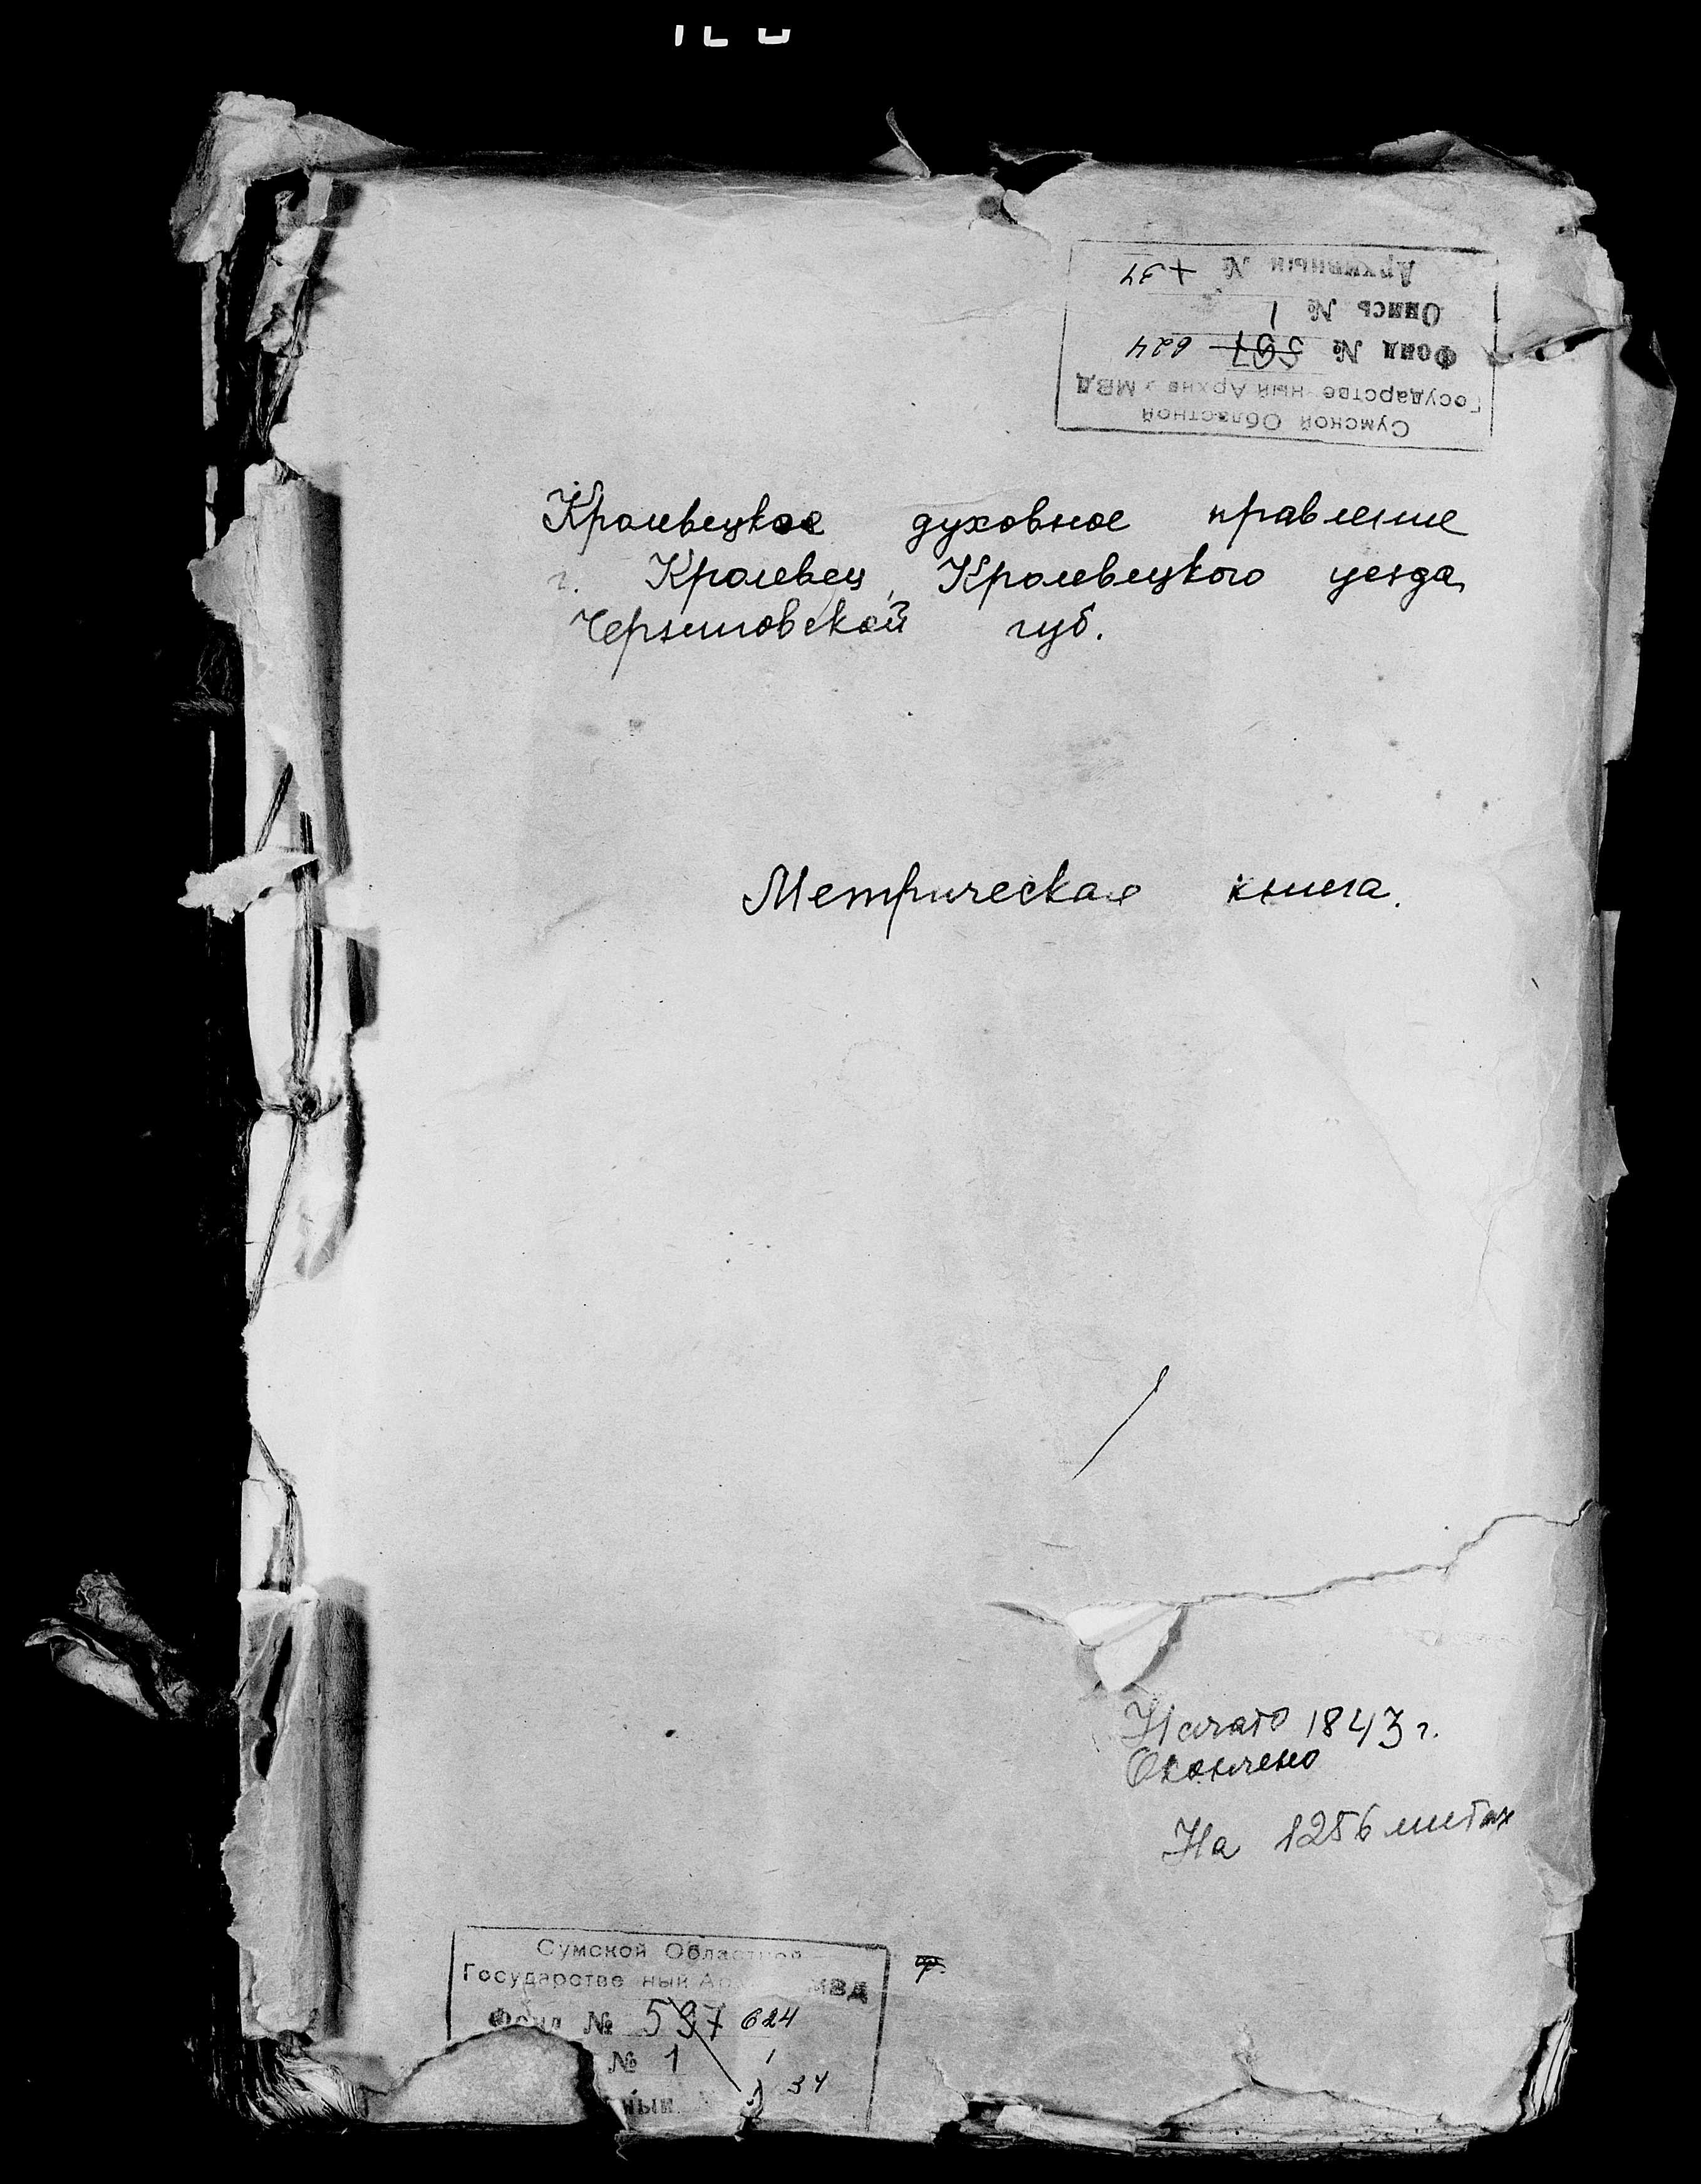 Сумской Областной
Государстве ный Архив МВД
Фонд № 597 624
Опись № 1
Архивный № 34
Кролевецкое духовное правление
г. Кролевец, Кролевецкого уезда,
Черниговской губ.
Метрическая книга.
Начато 1843 г.
Окончено
На 1256 листах
Сумской Областной
Государстве ный Ар МВД
Фонд № 597 624
№ 1 1
ный 34